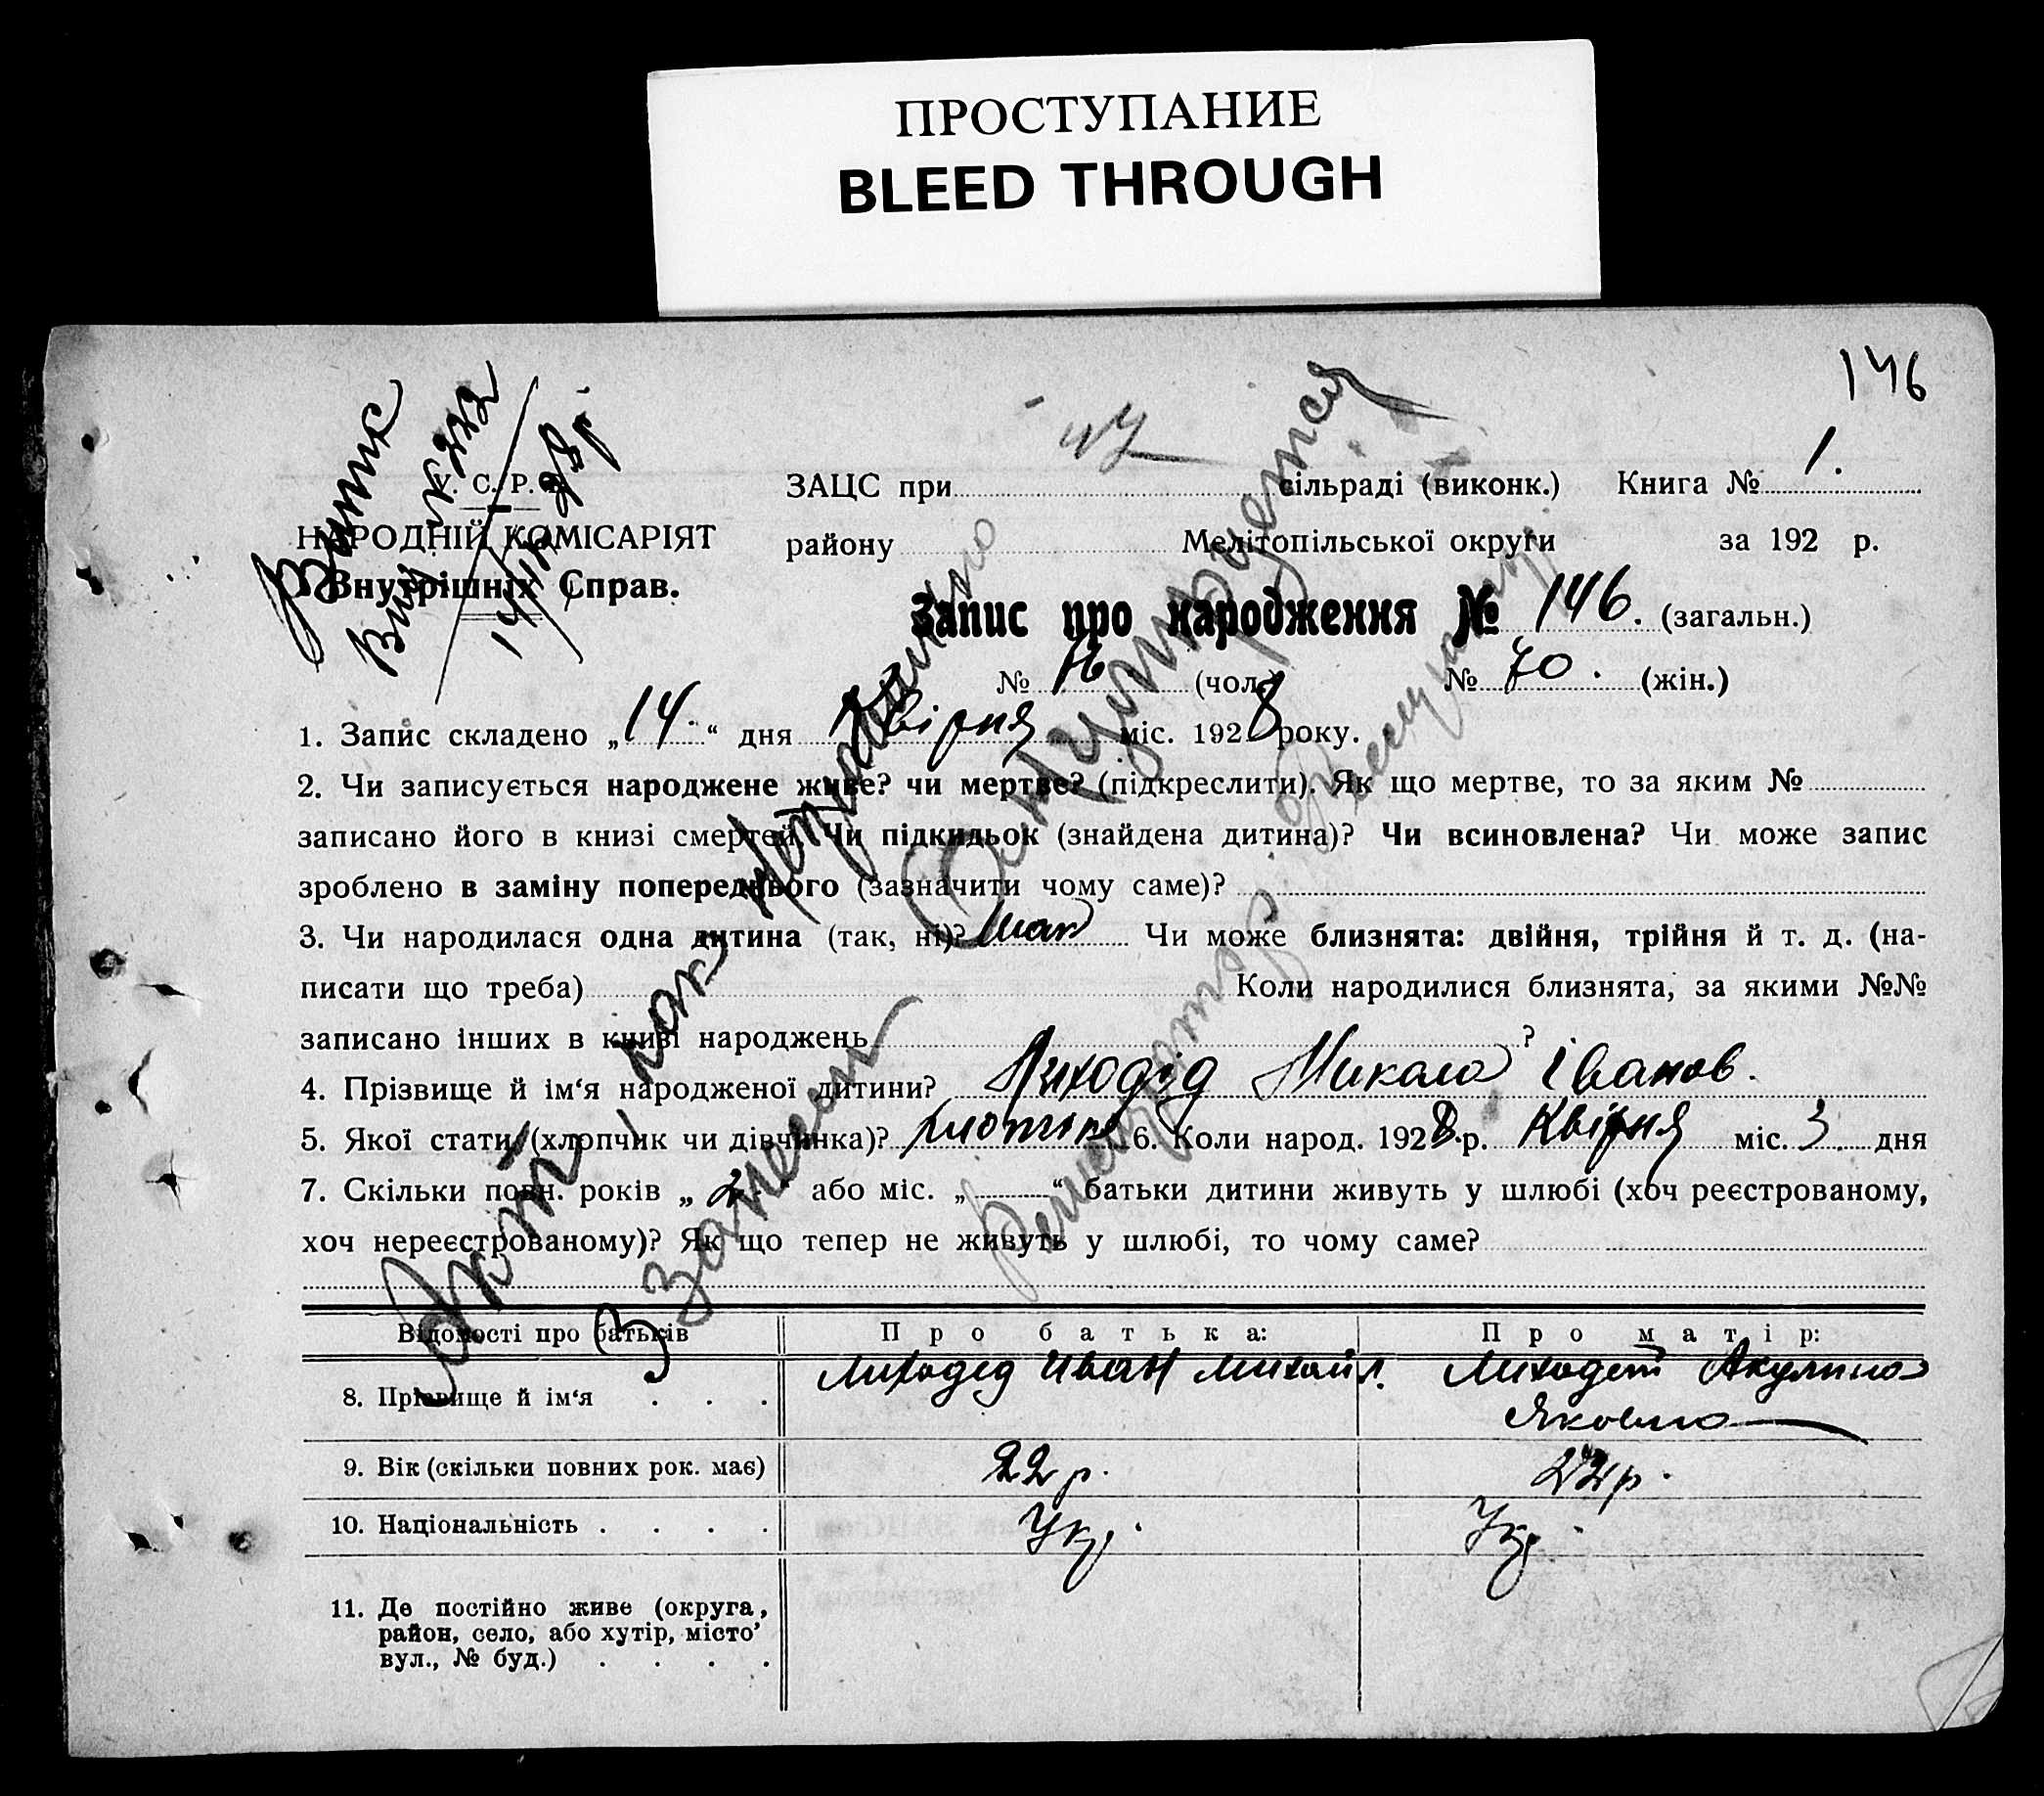 ПРОСТУПАНИЕ
BLEED THROUGH
146
У. С. Р. Р.
НАРОДНІЙ КОМІСАРІЯТ
Внутрішніх Справ.
Витяг
14/IV 28 р.
ЗАЦС при сільраді (виконк.) Книга № 1.
району Мелітопільської округи за 192 р.
Запис про народження № 146. (загальн.)
№ 76 (чол.) № 70. (жін.)
1. Запис складено „14“ дня Квірня міс. 1928 року.
2. Чи записується народжене живе? чи мертве? (підкреслити). Як що мертве, то за яким №
записано його в книзі смертей. Чи підкидьок (знайдена дитина)? Чи всиновлена? Чи може запис
зроблено в заміну попереднього (зазначити чому саме)?
3. Чи народилася одна дитина (так, ні)? так Чи може близнята: двійня, трійня й т. д. (на-
писати що треба) Коли народилися близнята, за якими №№
записано інших в книзі народжень ?
4. Прізвище й ім‘я народженої дитини? Лиходід Микола Іванов.
5. Якої стати (хлопчик чи дівчинка)? хлопчик 6. Коли народ. 1928 р. Квірня міс. 3 дня
7. Скільки повн. років „2“ або міс. „—“ батьки дитини живуть у шлюбі (хоч реєстрованому,
хоч нереєстрованому)? Як що тепер не живуть у шлюбі, то чому саме?
Акт, как неправильно
занесен
Аннулируется
Регистратор
Відомості про батьків Про батька: Про матір:
8. Прізвище й ім‘я . . . Лиходед Иван Михайл. Лиходет Акулина
Яковна
9. Вік (скільки повних рок. має) 22 р. 22 р.
10. Національність . . . . Укр. Укр.
11. Де постійно живе (округа,
район, село, або хутір, місто
вул., № буд.) . . . .